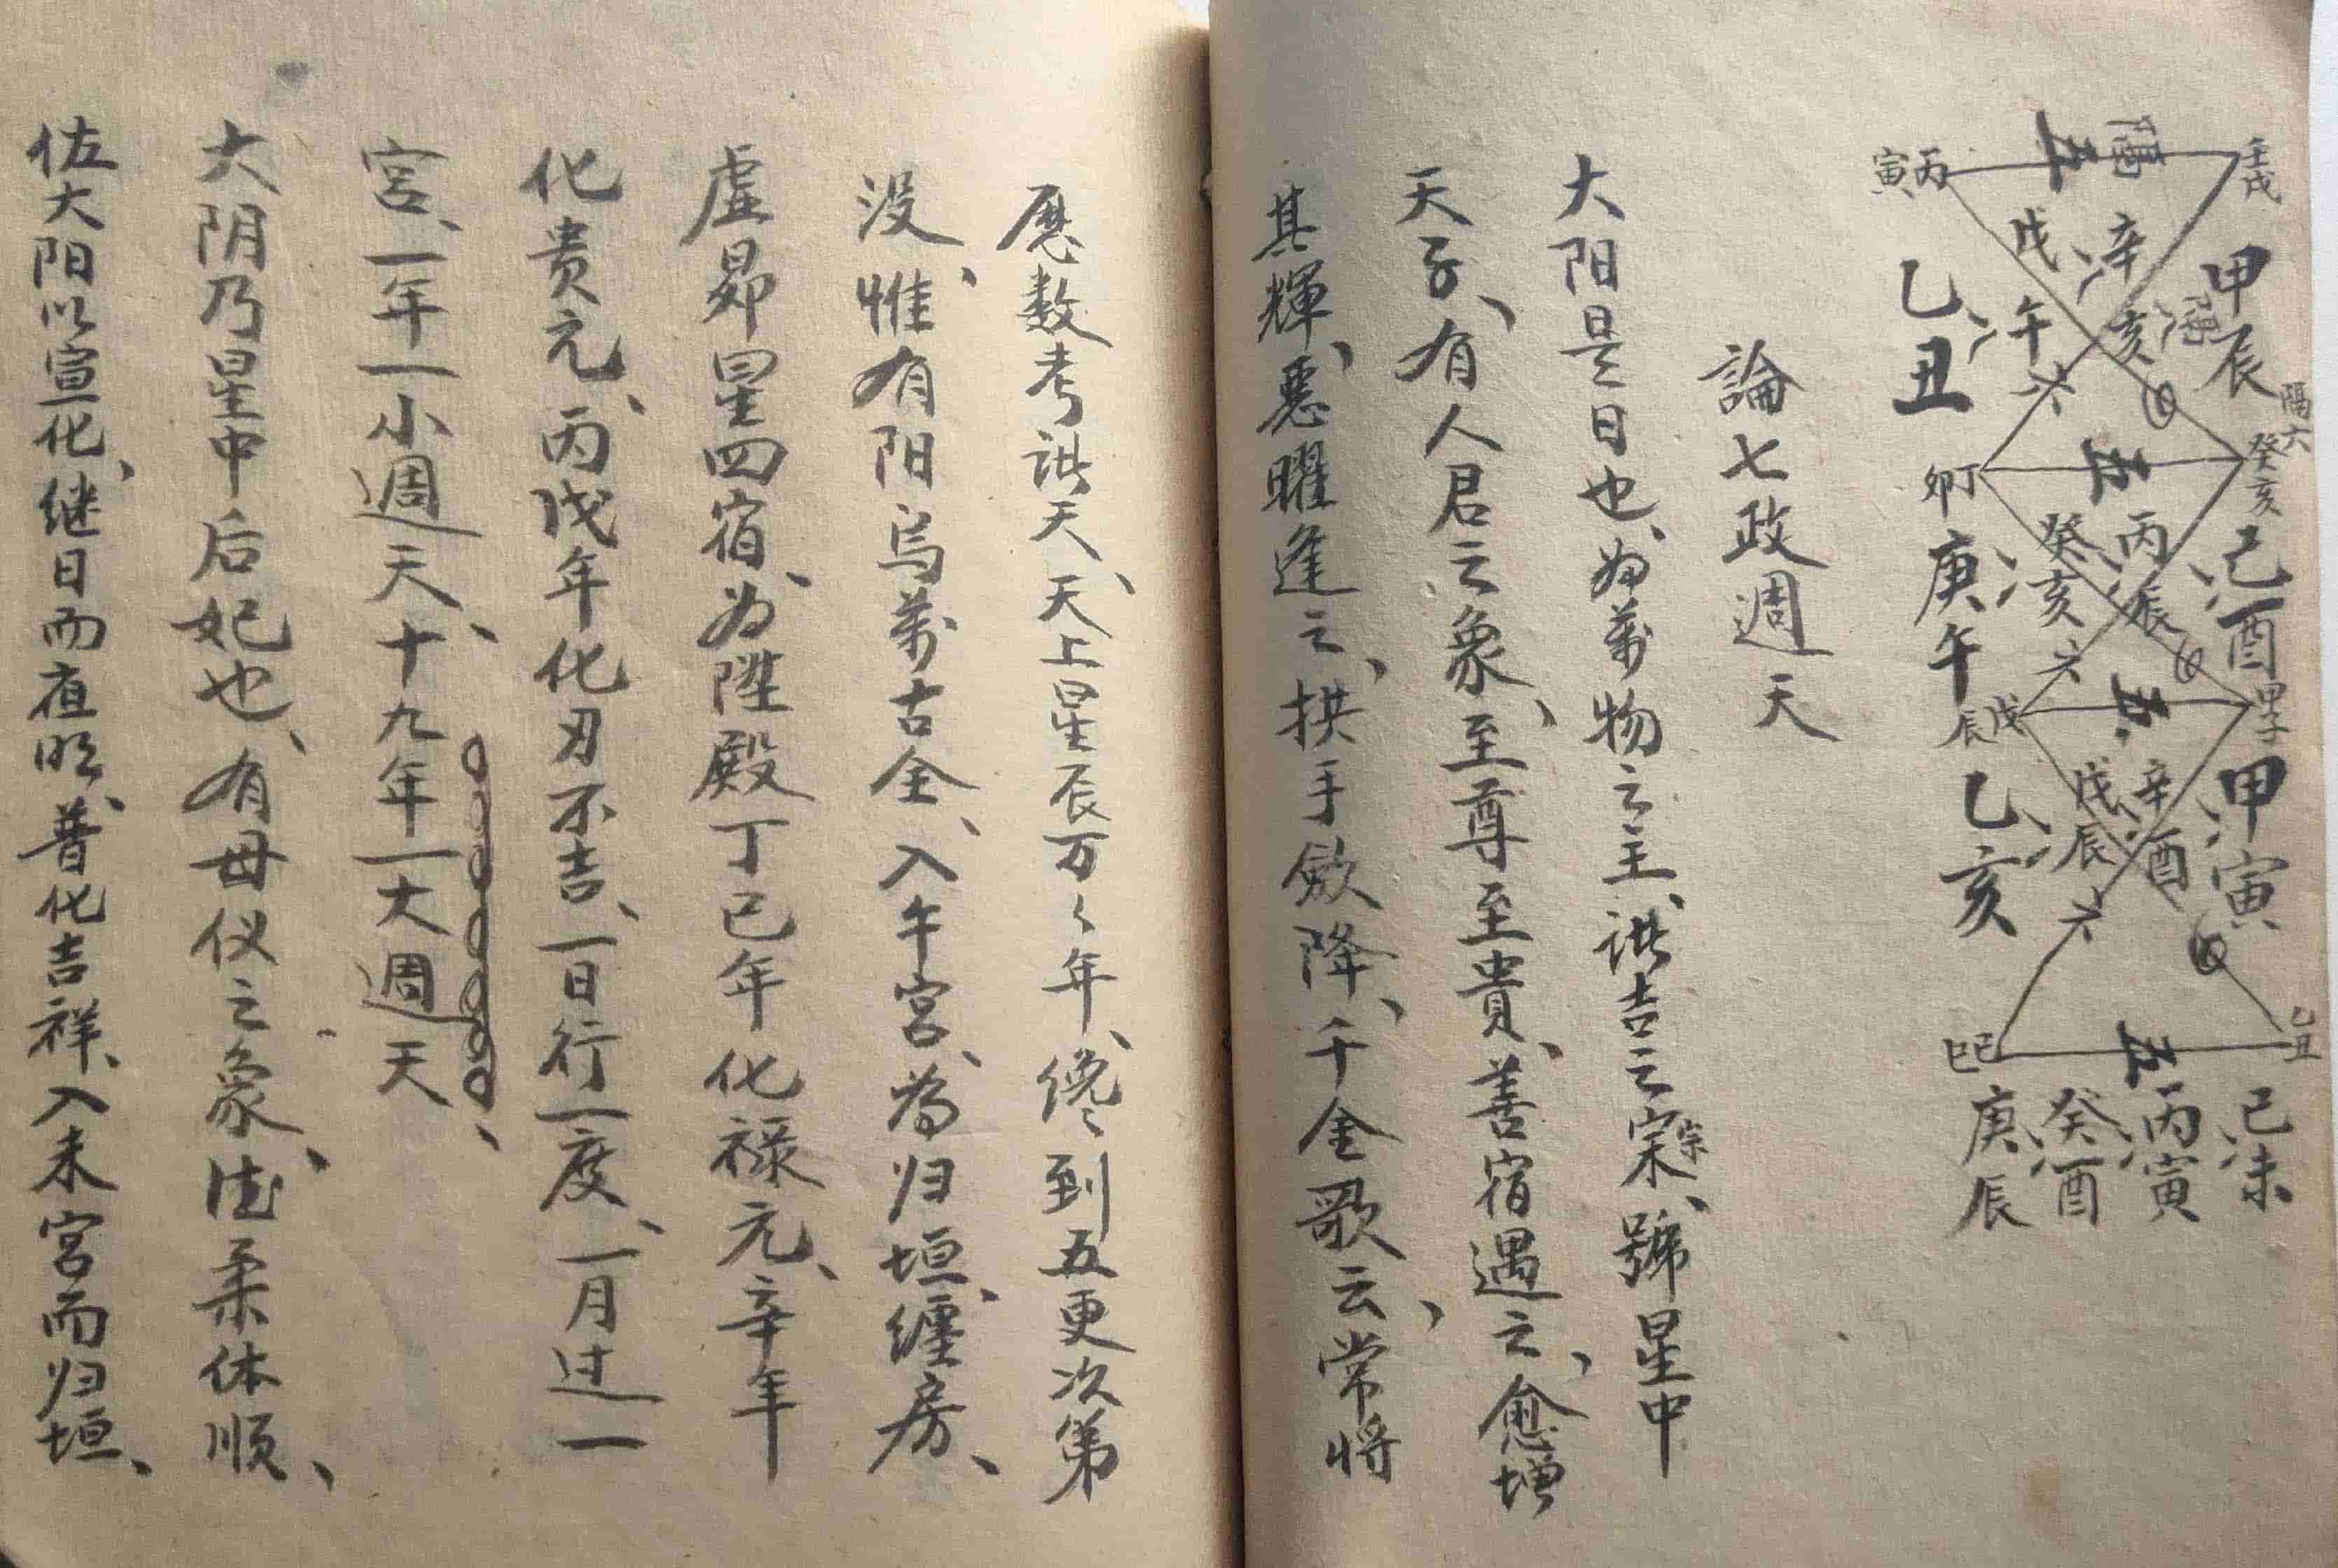 壬戌
隔五
丙寅
甲辰
辛亥
戊午
乙丑
隔六
六
癸亥
五
丁卯
己酉
丙辰
癸亥
庚午
六
甲子
五
戊辰
甲寅
辛酉
戊辰
乙亥
六
乙丑
五
己巳
己未
丙寅
癸酉
庚辰
論七政週天
大阳是日也、為萬物之主、諸吉之宗、號星中
天子、有人君之象、至尊至貴、善宿遇之、愈增
其輝、惡曜逢之、拱手斂降、千金歌云、常将
歷数考諸天、天上星辰万々年、才到五更次第
没、惟有阳烏萬古全、入午宮、為归垣、缠房、
虚昴星四宿、为陞殿丁巳年化禄元、辛年
化贵元、丙戊年化刃不吉、一日行一度、一月过一
宮、一年一小週天、十九年一大週天、
大阴乃星中后妃也、有母仪之象、德柔体順、
佐大阳以宣化、继日而夜明、普化吉祥、入未宫而归垣、